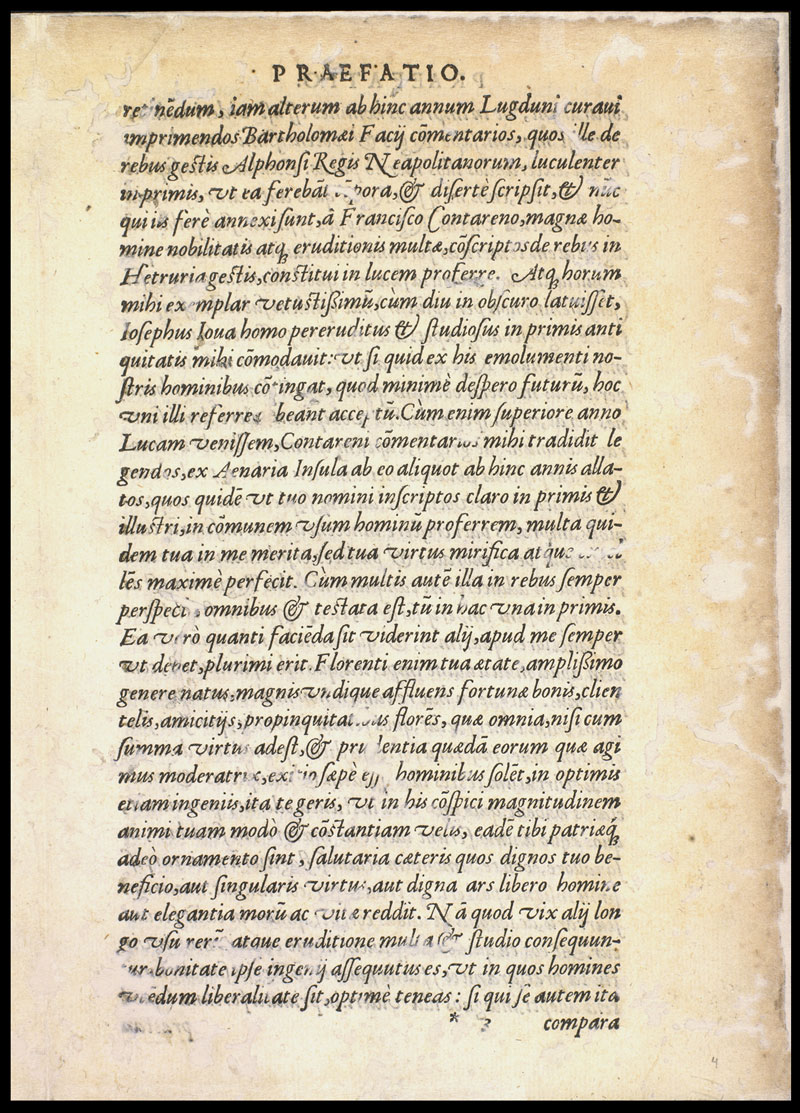 PRAEFATIO.
retinēdum, iam alterum ab hinc annum Lugduni curaui
imprimendos Bartholomæi Facij cōmentarios, quos ille de
rebus gestis Alphonsi Regis Neapolitanorum, luculenter
in primis, vt ea ferebāt & disertè scripsit, & nūc
qui iis ferè annexi sunt, â Francisco Contareno, magnæ ho-
mine nobilitatis atq; eruditionis multæ, cōscriptos de rebus in
Hetruria gestis, constitui in lucem proferre. Atq; horum
mihi exemplar vetustißimū, cùm diu in obscuro latuisset,
Iosephus Ioua homo pereruditus & studiosus in primis anti
quitatis mihi cōmodauit: vt si quid ex his emolumenti no-
stris hominibus cōtingat, quod minimè despero futurū, hoc
vni illi referre beant acceptū. Cùm enim superiore anno
Lucam venissem, Contareni cōmentarios mihi tradidit le
gendos, ex Aenaria Insula ab eo aliquot ab hinc annis alla-
tos, quos quidē vt tuo nomini inscriptos claro in primis &
illustri, in cōmunem vsum hominū proferrem, multa qui-
dem tua in me merita, sed tua virtus mirifica atque
lēs maximè perfecit. Cùm multis autē illa in rebus semper
perspecta omnibus & testata est, tū in hac vna in primis.
Ea verò quanti faciēda sit viderint alij, apud me semper
vt debet, plurimi erit. Florenti enim tua ætate, amplißimo
genere natus, magnis vndique affluens fortunæ bonis, clien
telis, amicitijs, propinquitatibus florēs, quæ omnia, nisi cum
summa virtus adest, & prudentia quædā eorum quæ agi
mus moderatrix, sæpè hominibus solēt, in optimis
etiam ingeniis, ita te geris, vt in his cōspici magnitudinem
animi tuam modò & cōstantiam velis, eadē tibi patriæq́;
adeò ornamento sint, salutaria cæteris quos dignos tuo be-
neficio, aut singularis virtus, aut digna ars libero homine
aut elegantia morū ac vitæ reddit. Nā quod vix alij lon
go vsu rerū atque eruditione multa & studio consequun-
tur, bonitate ipse ingenij assequutus es, vt in quos homines
vtēdum liberalitate sit, optimè teneas: si qui se autem ita
* 3 compara
4